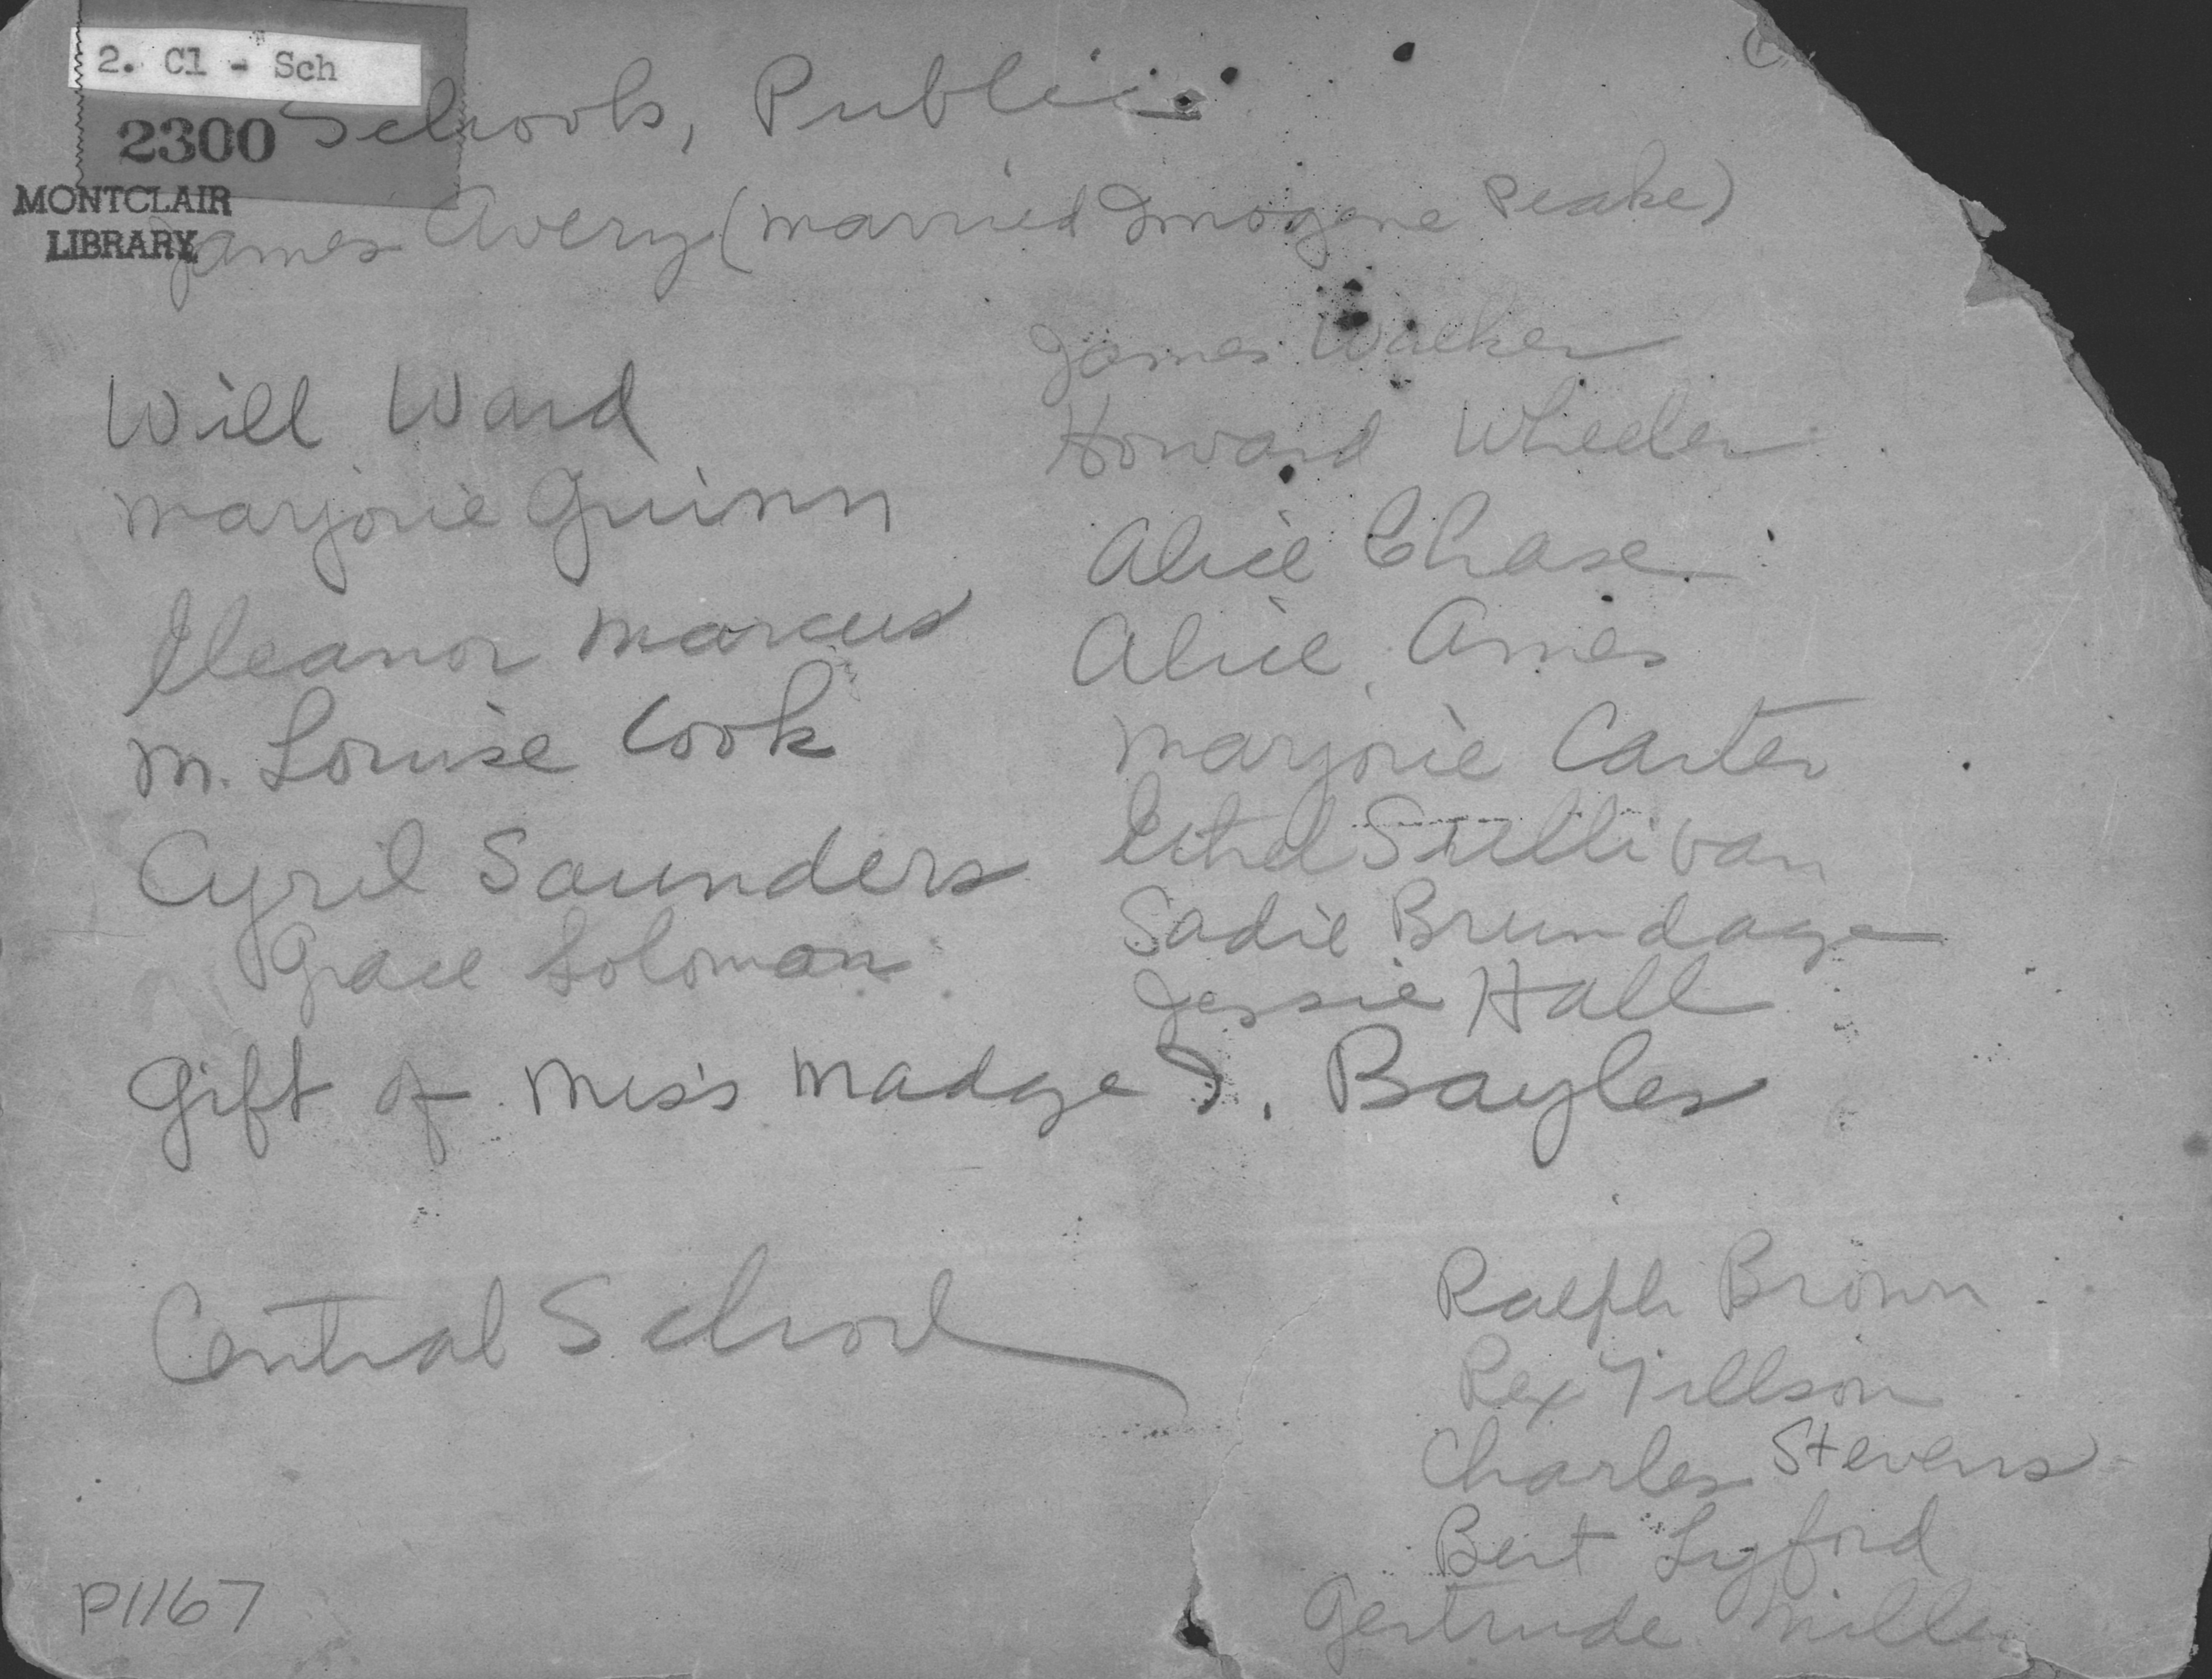 2. Cl - Sch
Schools, Public
2300
MONTCLAIR
LIBRARY
James Avery (married Imogene Peake)
Will Ward
Marjorie Guinn
Eleanor Marcus
M. Louise Cook
Cyril Saunders
Grace Soloman
James Walker
Howard Wheeler
Alice Chase
Alice Ames
Marjorie Carter
Ethel Sullivan
Sadie Brundage
Jessie Hall
Gift of Miss Madge I. Bayles
Central School
Ralph Brown
Rex Tillson
Charles Stevens
Bert Lyford
Gertrude Miller
P1167